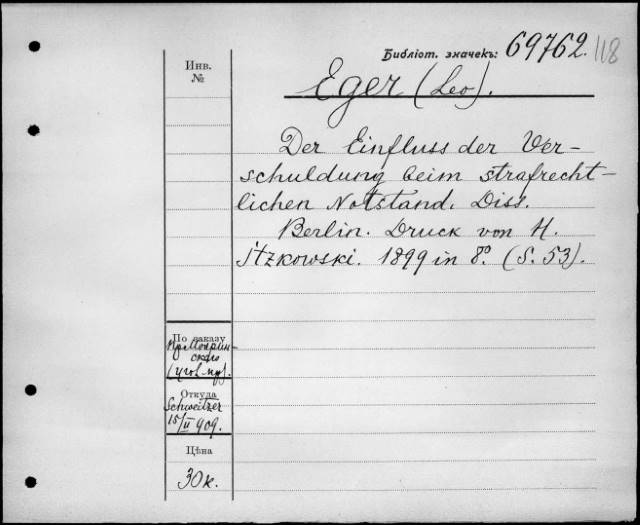 Библіот. значекъ: 69762. 118
Инв.
№
Eger (Leo).
Der Einfluss der Ver-
schuldung beim strafrecht-
lichen Notstand. Diss.
Berlin. Druck von H.
Itzkowski. 1899 in 8º. (S. 53).
По заказу
Откуда
Schweitzer
15/II 909.
Цѣна
30 к.